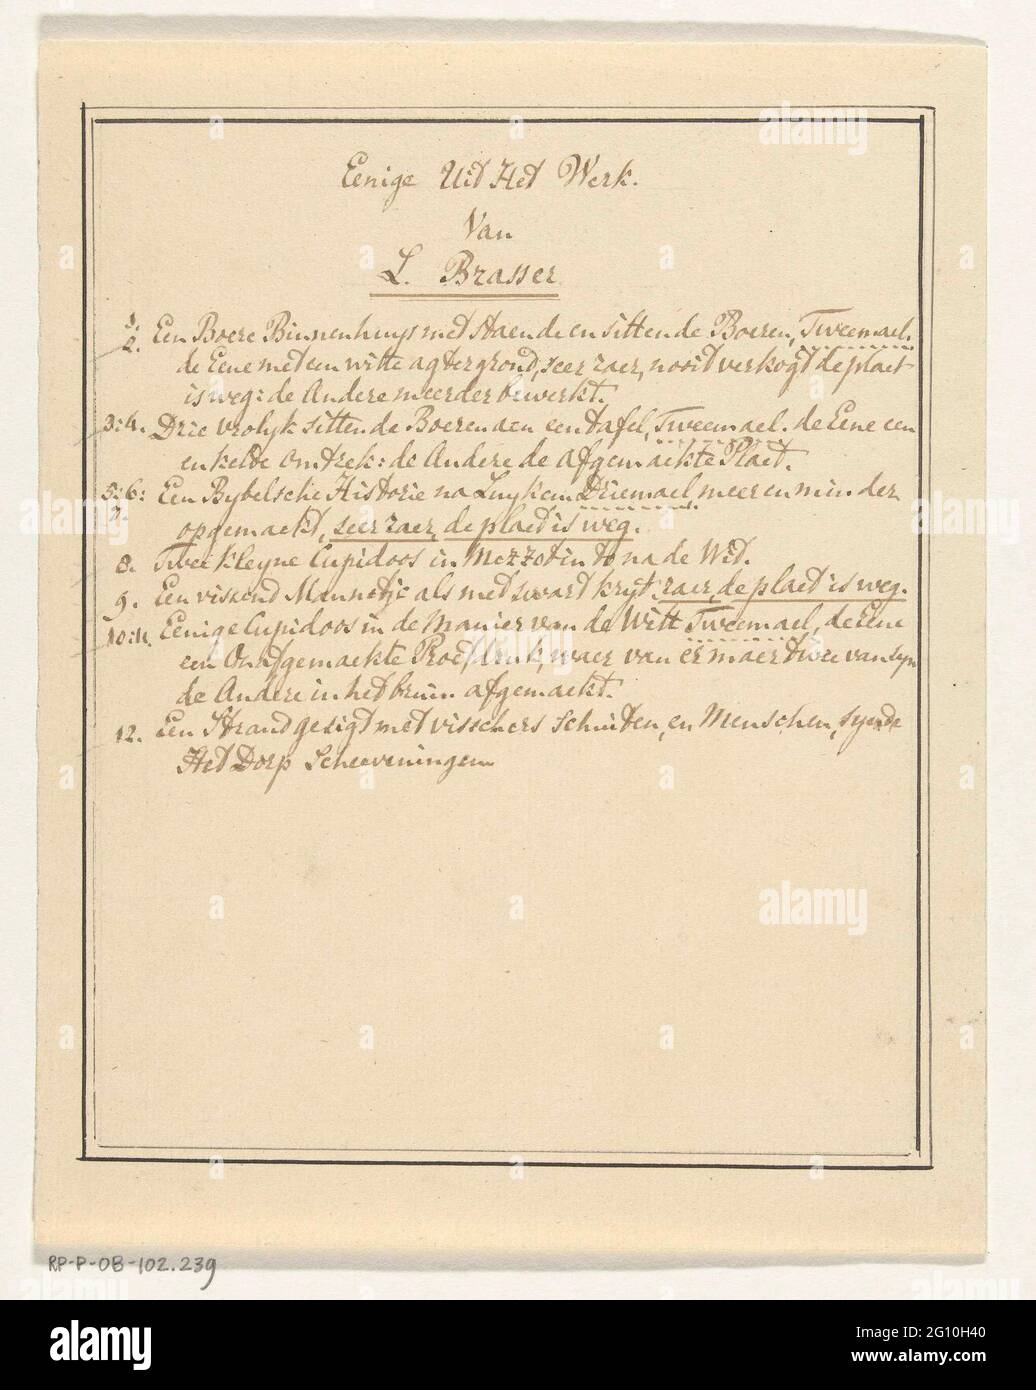 Eenige Uit Het Werk.
Van
L. Brasser
1: 2. Een Boere Binnenhuys met staende en sittende Boeren, Tweemael.
de Eene met een witte agtergrond, seer raer, nooit verkogt de plaet
is weg: de Andere meerder bewerkt.
3:4. Drie vrolyk sittende Boeren aen een tafel, Tweemael. de Eene een
enkelde omtrek: de Andere de afgemaekte Plaet.
5:6: 7. Een Bybelsche Historie na Luyken Driemael, meer en minder
opgemaekt, seer raer, de plaet is weg.
8. Twee kleyne Cupidoos in Mezzotinto na de Wit.
9. Een vissend Mannetje als met swart kryt, raer, de plaet is weg.
10:11. Eenige Cupidoos in de Manier van de Witt Tweemael, de Eene
een Onafgemaekte Proefdruk, waer van er maer twee van syn
de Andere in het bruin afgemaekt.
12. Een Strandgesigt met visschers Schuiten, en Menschen, synde
Het Dorp Scheveningen
RP-P-OB-102.239
alamy
Image ID: 2G10H40
www.alamy.com